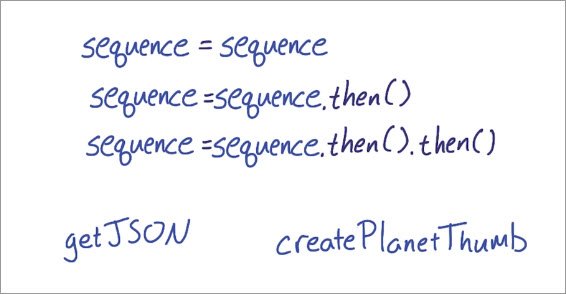 sequence = sequence
sequence =sequence.then()
sequence =sequence.then().then()
getJSON createPlanetThumb